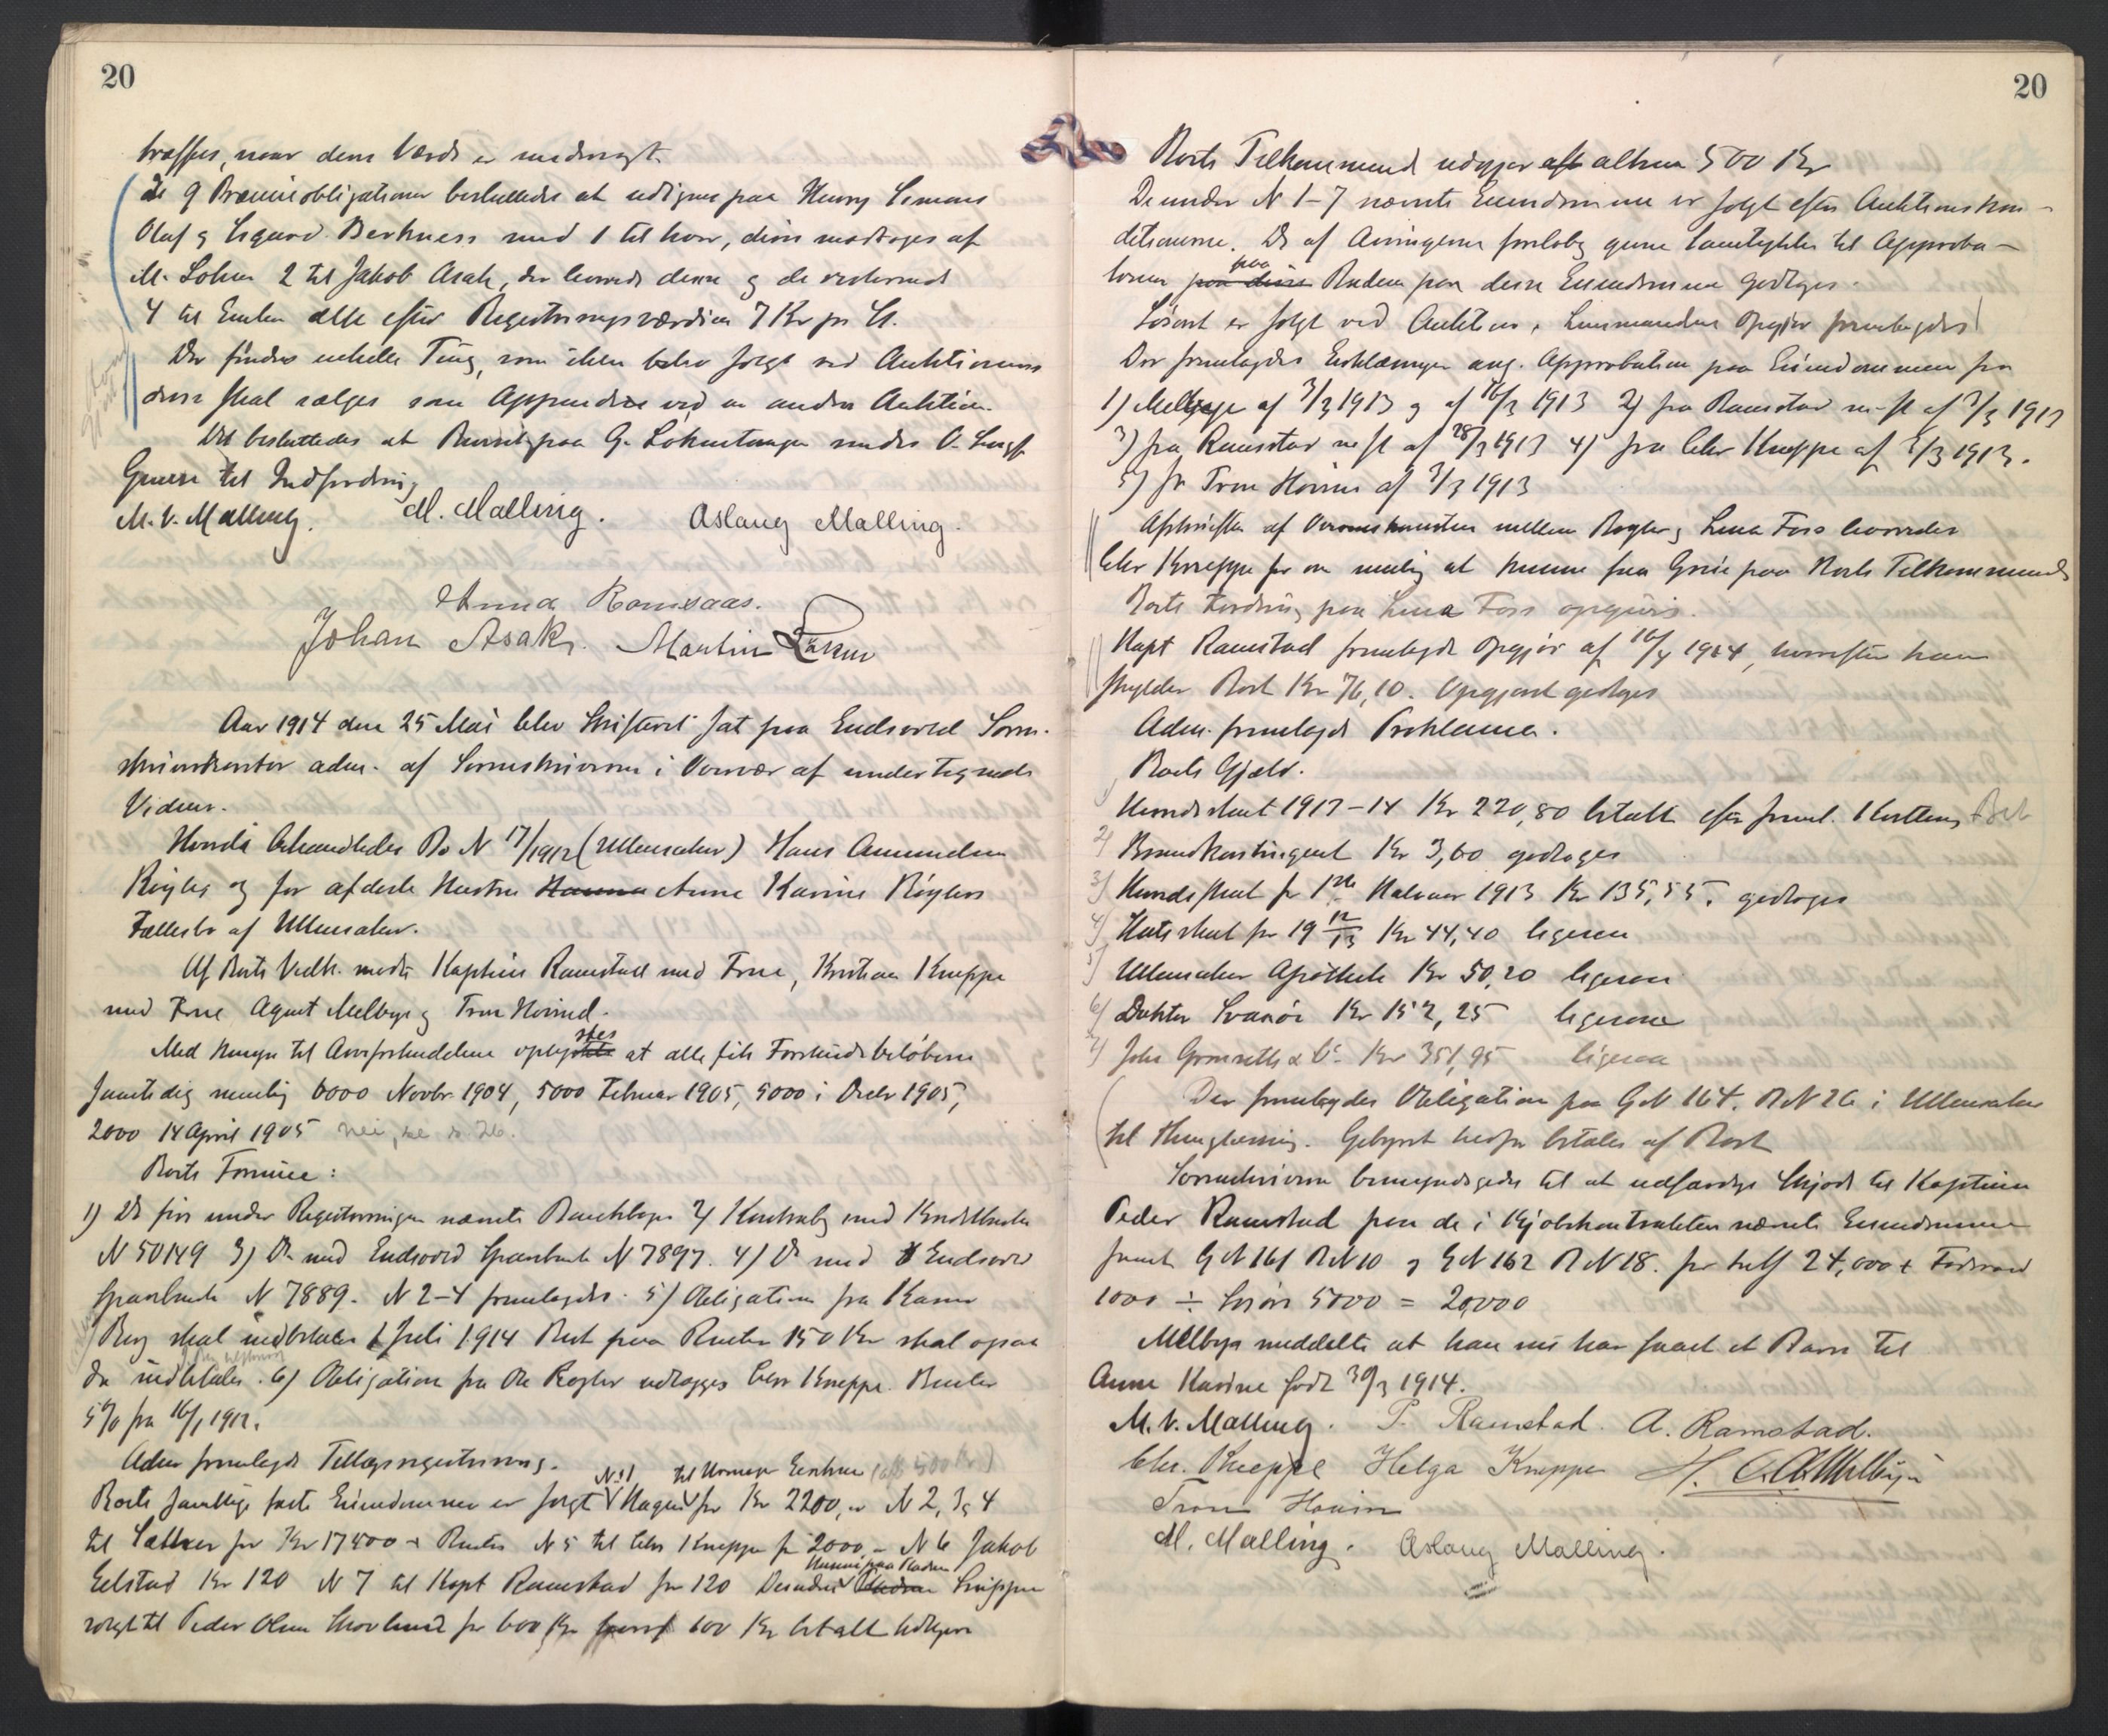 20
træffes, naar dens Værdi er undersøgt.
De 9 Præmieobligationer besluttedes at udlignes paa Henry Simens
Olaf og Sigurd Berkness med 1 til hver, disse modtoges af
M. Lohne 2 til Jakob Asak, der leverede denne og de resterende
4 til Enken alle efter Registreringsværdien 7 Kr pr St.
Der findes enkelte Ting, som ikke blev solgt ved Auktionen
disse skal sælges som Appendix ved en anden Auktion.
Det besluttedes at paa G. sendes O.
til Indfordring
M. V. Malling. M. Malling. Aslaug Malling.
Anna Romsaas.
Johan Asak. Martin
Aar 1914 den 25 Mai blev Skifteret sat paa Eidsvold Soren-
skriverkontor adm. af Sorenskriveren i Overvær af undertegnede
Vidner.
Herved behandledes Bo N 17/1912 (Ullensaker) Hans Amundsen
Røgler og for afdøde Hustru Hanna Anne Karine Røglers
Fællesbo af Ullensaker.
Af Boets Vedk. mødte Kaptein Ramstad med Frue, Kristian Kneppe
med Frue August Melbye og Tron Hovind.
Med Hensyn til Arveforskuddene oplystes at alle fik Forskudsbeløbene
samtidig nemlig 6000 Novbr 1904, 5000 Februar 1905, 5000 i Decbr 1905,
2000 14 April 1905 nei, se s. 26.
Boets Formue:
1) De før under Registreringen nævnte Bankbøger 2) Kontrabog med Kreditbanken
N 50149 3) Do med Eidsvold Sparebank N 7897. 4) Do med Eidsvold
Sparebank N 7889. N 2-4 fremlagdes. 5) Obligation fra Karen
Berg skal indbetales 1 Juli 1914 Rest paa Renten 150 Kr skal ogsaa
da indbetales. 6) Obligation fra Ole Røgler udlægges Chr. Kneppe. Renter
5% fra 16/1 1912.
Adm fremlagde Tillægsregistrering.
N: 1 til Enken (alt 500 Kr)
Boets samtlige faste Eiendommer er solgt Hagen for Kr 2200, N 2, 3 og 4
til Sætter for Kr 17400 + Renter N 5 til Chr. Kneppe for 2000 - N 6 Jakob
Eelstad Kr 120 N 7 til Kapt Ramstad for 120 Desuden
solgt til Peder Olsen for 600 Kr 600 Kr betalt
20
Boets Tilkommende udgjør alt altsaa 500 Kr
De under N 1-7 nævnte Eiendomme er solgt efter Auktionskon-
ditionerne. De af Arvingerne forelobig givne Samtykker til Approba-
tionen paa disse paa Budene paa disse Eiendomme godtages.
Løsøret er solgt ved Auktion, Lensmandens Opgjør fremlagdes
Der fremlagdes Erklæringer ang. Approbation paa Eiendommene fra
1) Melbye af 3/3 1913 og af 16/3 1913 2) fra Ramstad m. fl. af 3/3 1913
3) fra Ramstad m fl af 28/3 1913 4) fra Chr Kneppe af 3/3 1913.
5) fr Tron Hovin af 3/3 1913
Afskriften af Overenskomsten mellem Røgler og Lina Foss leveredes
Chr Kneppe for om mulig at kunne faa Greie paa Boets Tilkommende
Boets Fordring paa Lina Foss opgives.
Kapt Ramstad fremlagde Opgjør af 16/4 1914, hvorefter han
skylder Boet Kr 76,10. Opgjøret godtoges
Adm. fremlagde Proklama.
Boets Gjæld.
1) Herredsskat 1913-14 Kr 220,80 betalt efter freml. Kvittering Bet
2) Brandkontingent Kr 3,60 godtoges
3) Herredsskat for 1ste Halvaar 1913 Kr 135,55. godtoges
4) Statsskat for 19 12/13 Kr 44,40 ligesaa
5) Ullensaker Apothek Kr 50,20 ligesaa
6) Doktor Svanøe Kr 152,25 ligesaa
7) Johs Grønseth & Co. Kr 351,95 ligesaa
Der fremlagdes Obligation paa G N 164. B N 26 i Ullensaker
til Tinglæsning. Gebyret herfor betales af Boet
Sorenskriveren bemyndigedes til at udfærdige Skjøde til Kaptein
Peder Ramstad paa de i Kjøbekontrakten nævnte Eiendomme
samt G N 161 B N 10 og G N 162 B N 18. for tils 24,000 + Føderaad
1000 ÷ Løsøre 5000 = 20,000
Melbye meddelte at han nu har faaet et Barn til
Anne Karine født 30/3 1914.
M. V. Malling. P. Ramstad. A. Ramstad.
Chr. Kneppe Helga Kneppe H. A. Melbye
Tron Hovin
M. Malling. Aslaug Malling.